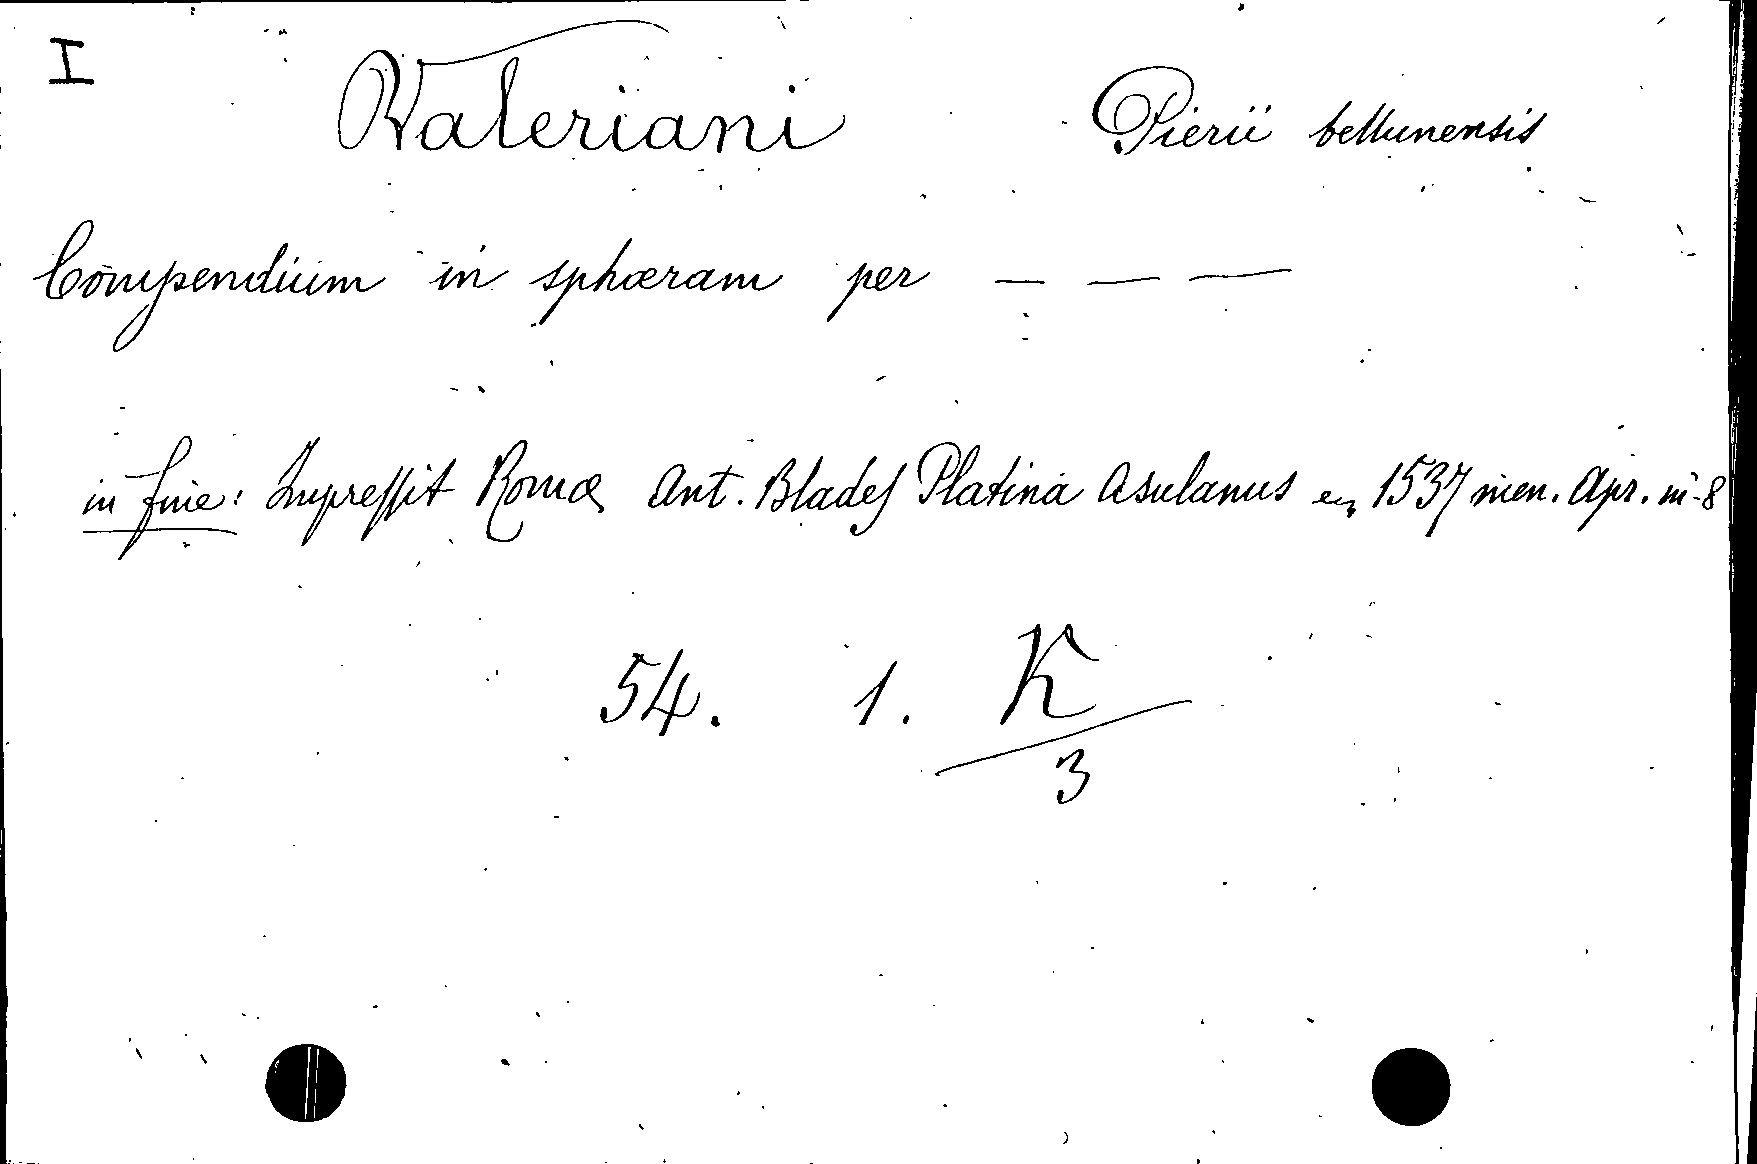 I
Valeriani Pierii bellunensis
Compendium in sphæram per — — —
in fine: Impressit Romæ Ant. Blades Platina Asulanus 1537 men. Apr. in-8
54. 1. K
3